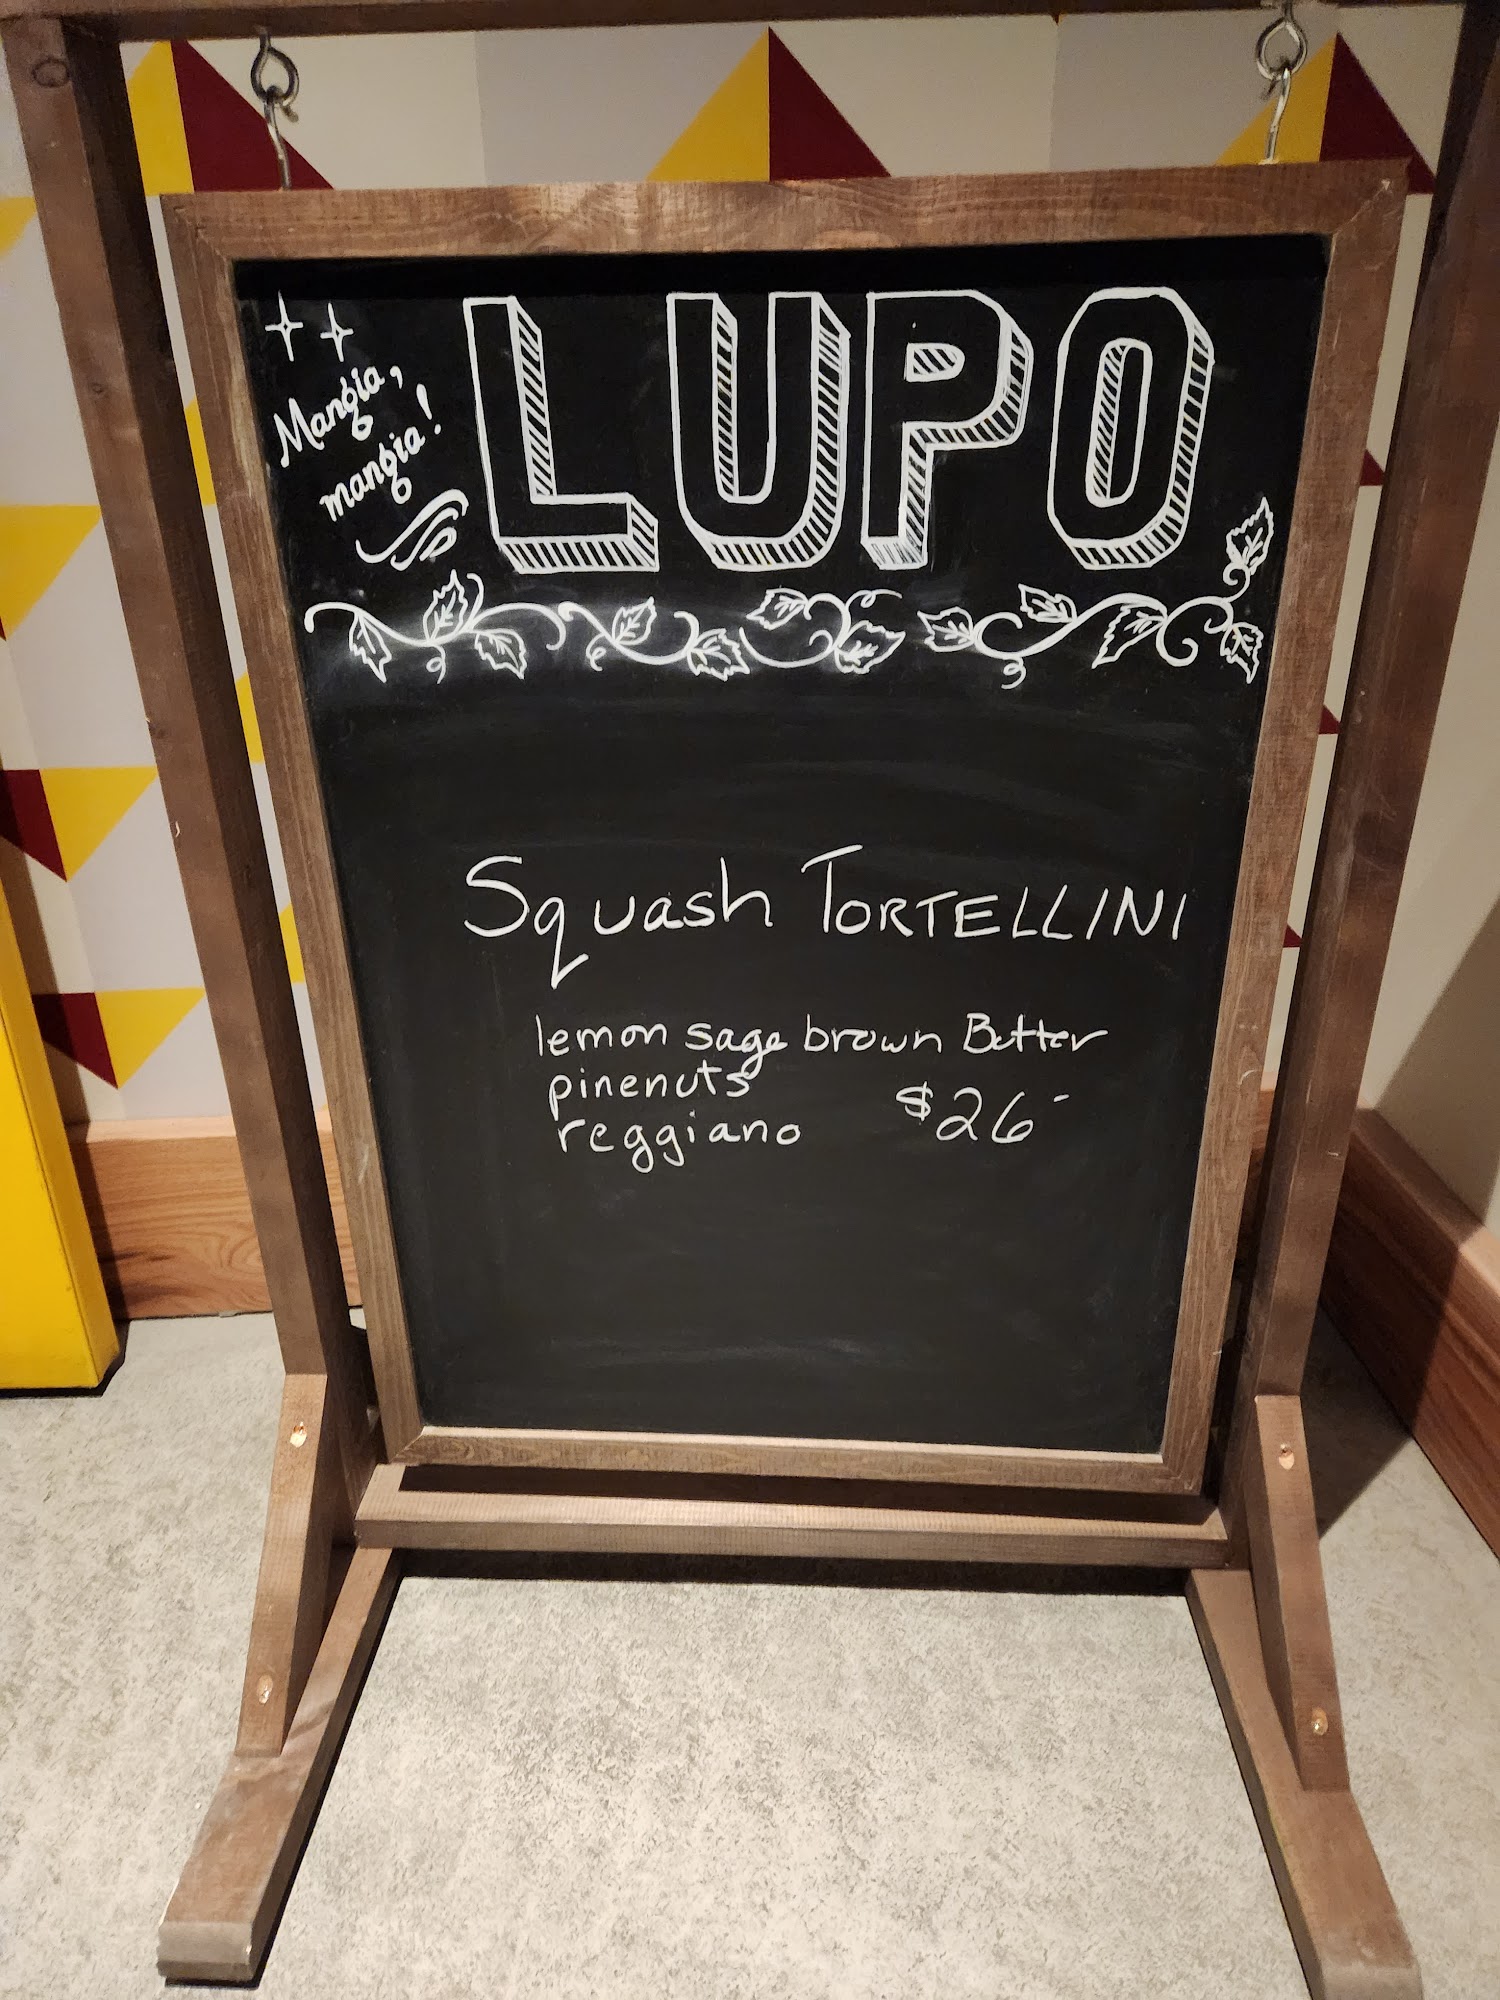 LUPO
Mangia,
mangia!
Squash TORTELLINI
lemon sage brown Butter
pinenuts
reggiano $26-